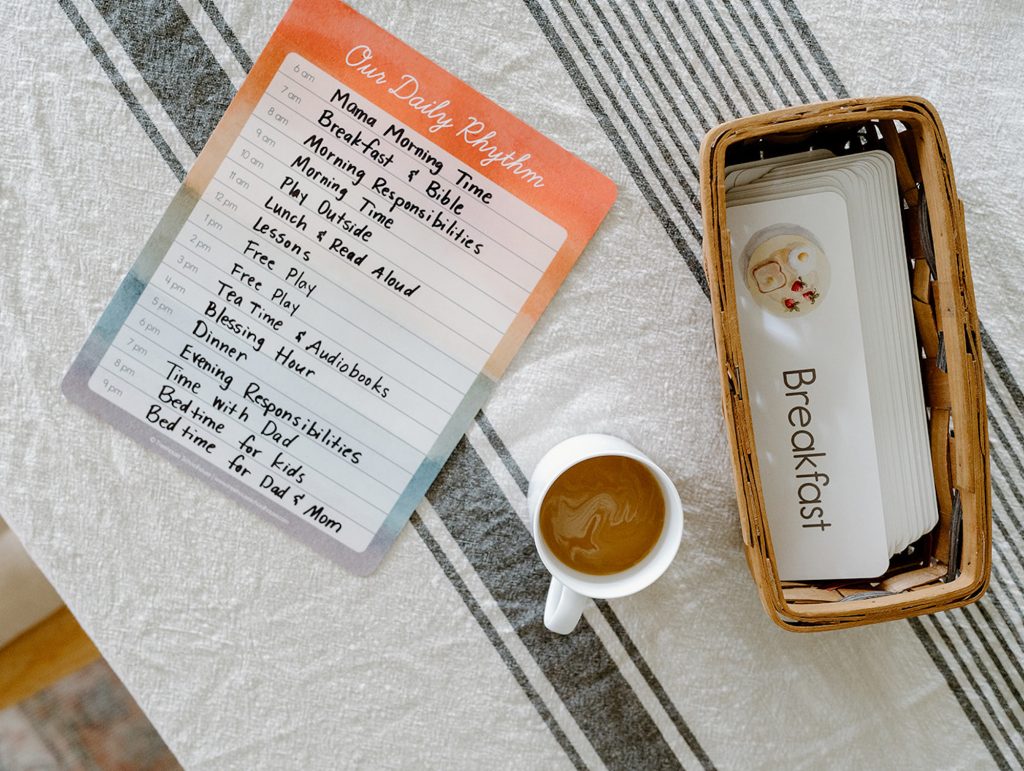 Our Daily Rhythm
6 am Mama Morning Time
7 am Breakfast & Bible
8 am Morning Responsibilities
9 am Morning Time
10 am Play Outside
11 am Lunch & Read Aloud
12 pm Lessons
1 pm Free Play
2 pm Free Play
3 pm Tea Time & Audiobooks
4 pm Blessing Hour
5 pm Dinner
6 pm Evening Responsibilities
7 pm Time with Dad
8 pm Bedtime for kids
9 pm Bedtime for Dad & Mom
Breakfast